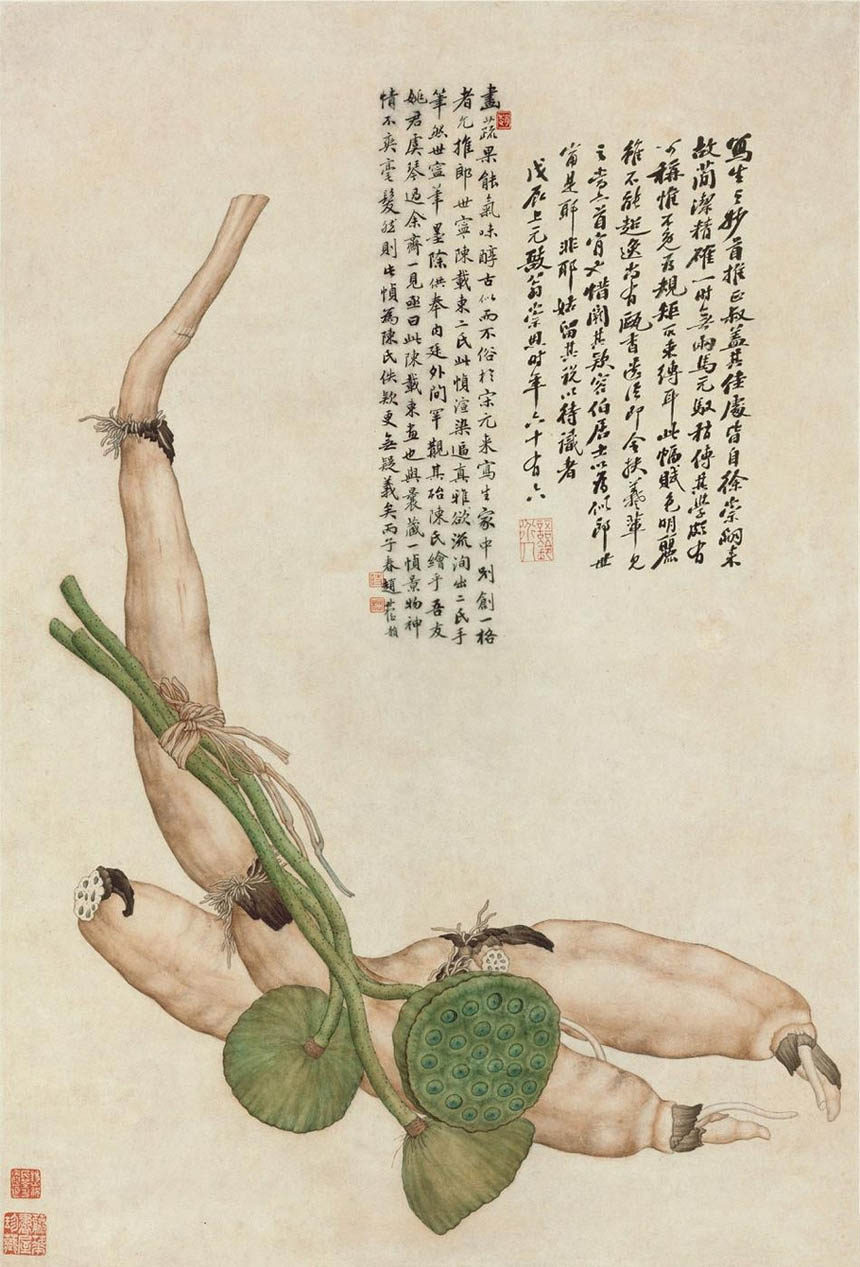 寫生之妙首推正叔蓋其佳處皆自徐崇嗣來
故簡潔精確一時無兩馬元馭傳其學頗有
可稱惟不免為規矩所束縛耳此幅賦色明麗
雖不能超逸尚有甌香遺法即令扶羲輩見
之當亦首肯也惜闕其款容伯居士以為似郎世
甯是耶非耶姑留其說以待識者
戊辰上元駿翁崇熙時年六十有六
畫蔬果能氣味醇古似而不俗於宋元來寫生家中別創一格
者允推郎世寧陳載東二氏此幀渲染逼真雅欲流洵出二氏手
筆然世寧筆墨除供奉內廷外間罕覯其殆陳氏繪乎吾友
姚君虞琴過余齋一見亟曰此陳載東畫也與曩藏一幀景物神
情不爽毫髮然則此幀為陳氏佚款更無疑義矣丙子春趙